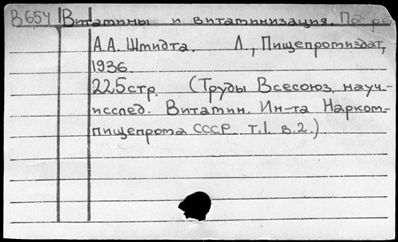 В654 Витамины и витаминизация. Под ре
А.А. Шмидта. Л., Пищепромиздат,
1936.
225стр. (Труды Всесоюз. науч.-
исслед. Витамин. Ин-та Нарком-
пищепрома СССР т.1. в.2.)